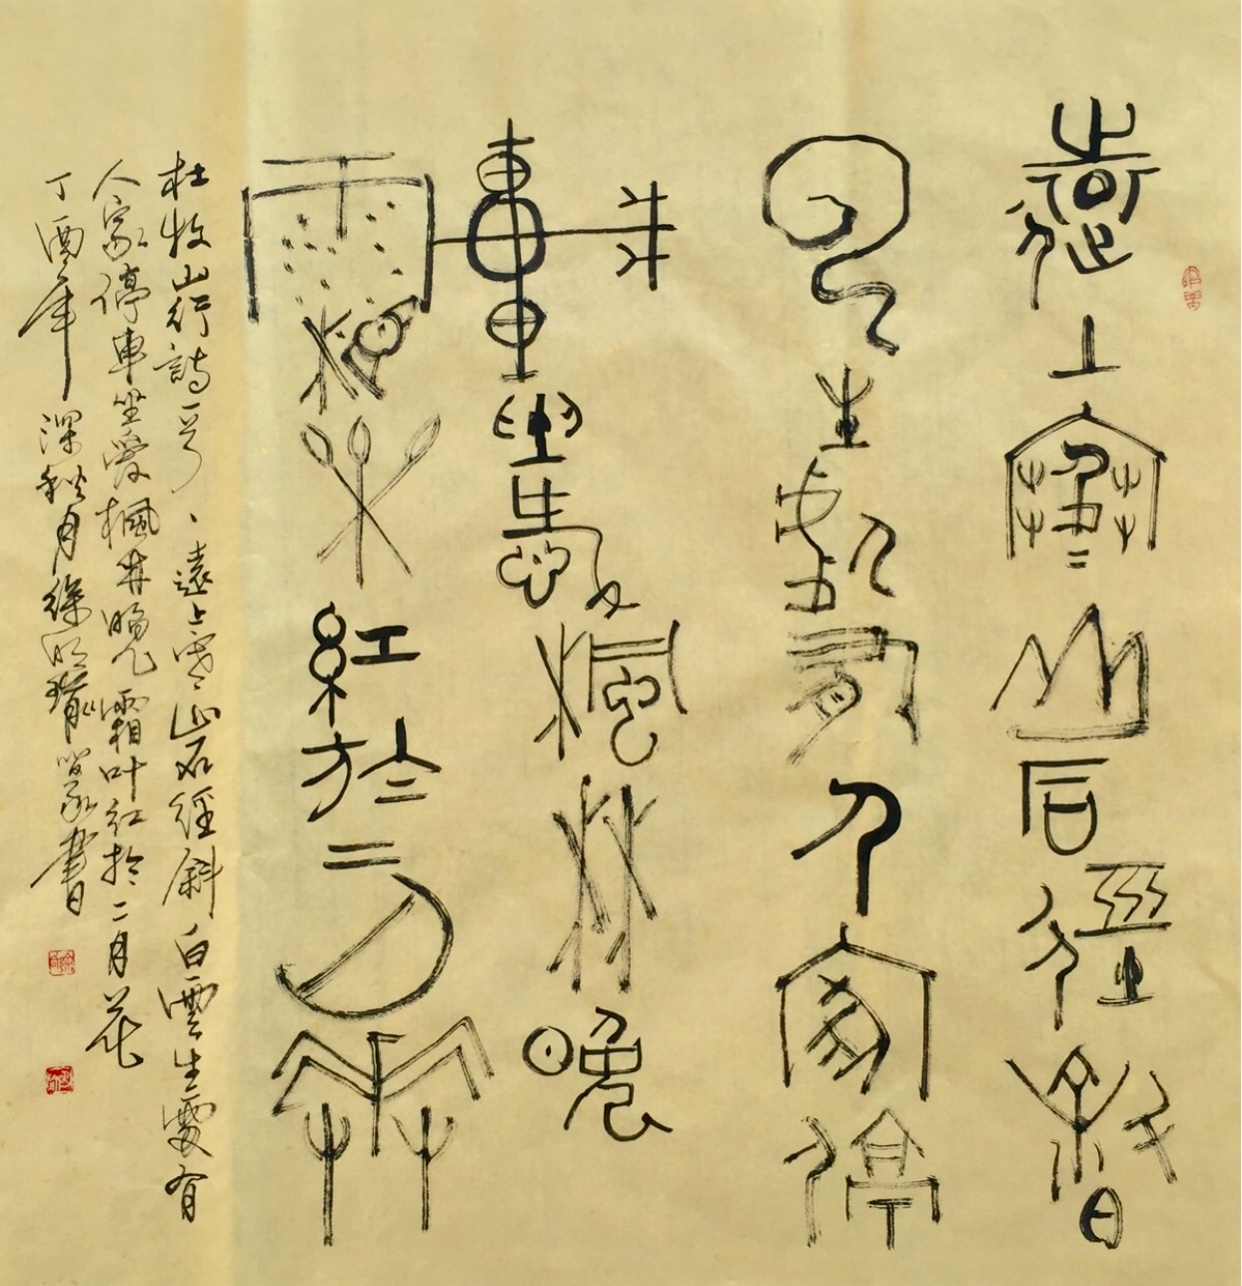 遠上寒山石徑斜白
雲生處有人家停
車坐愛楓林晚
霜葉紅於二月花
杜牧山行詩 遠上寒山石徑斜白雲生處有
人家停車坐愛楓林晚霜叶红於二月花
丁酉年深秋月徐 篆書